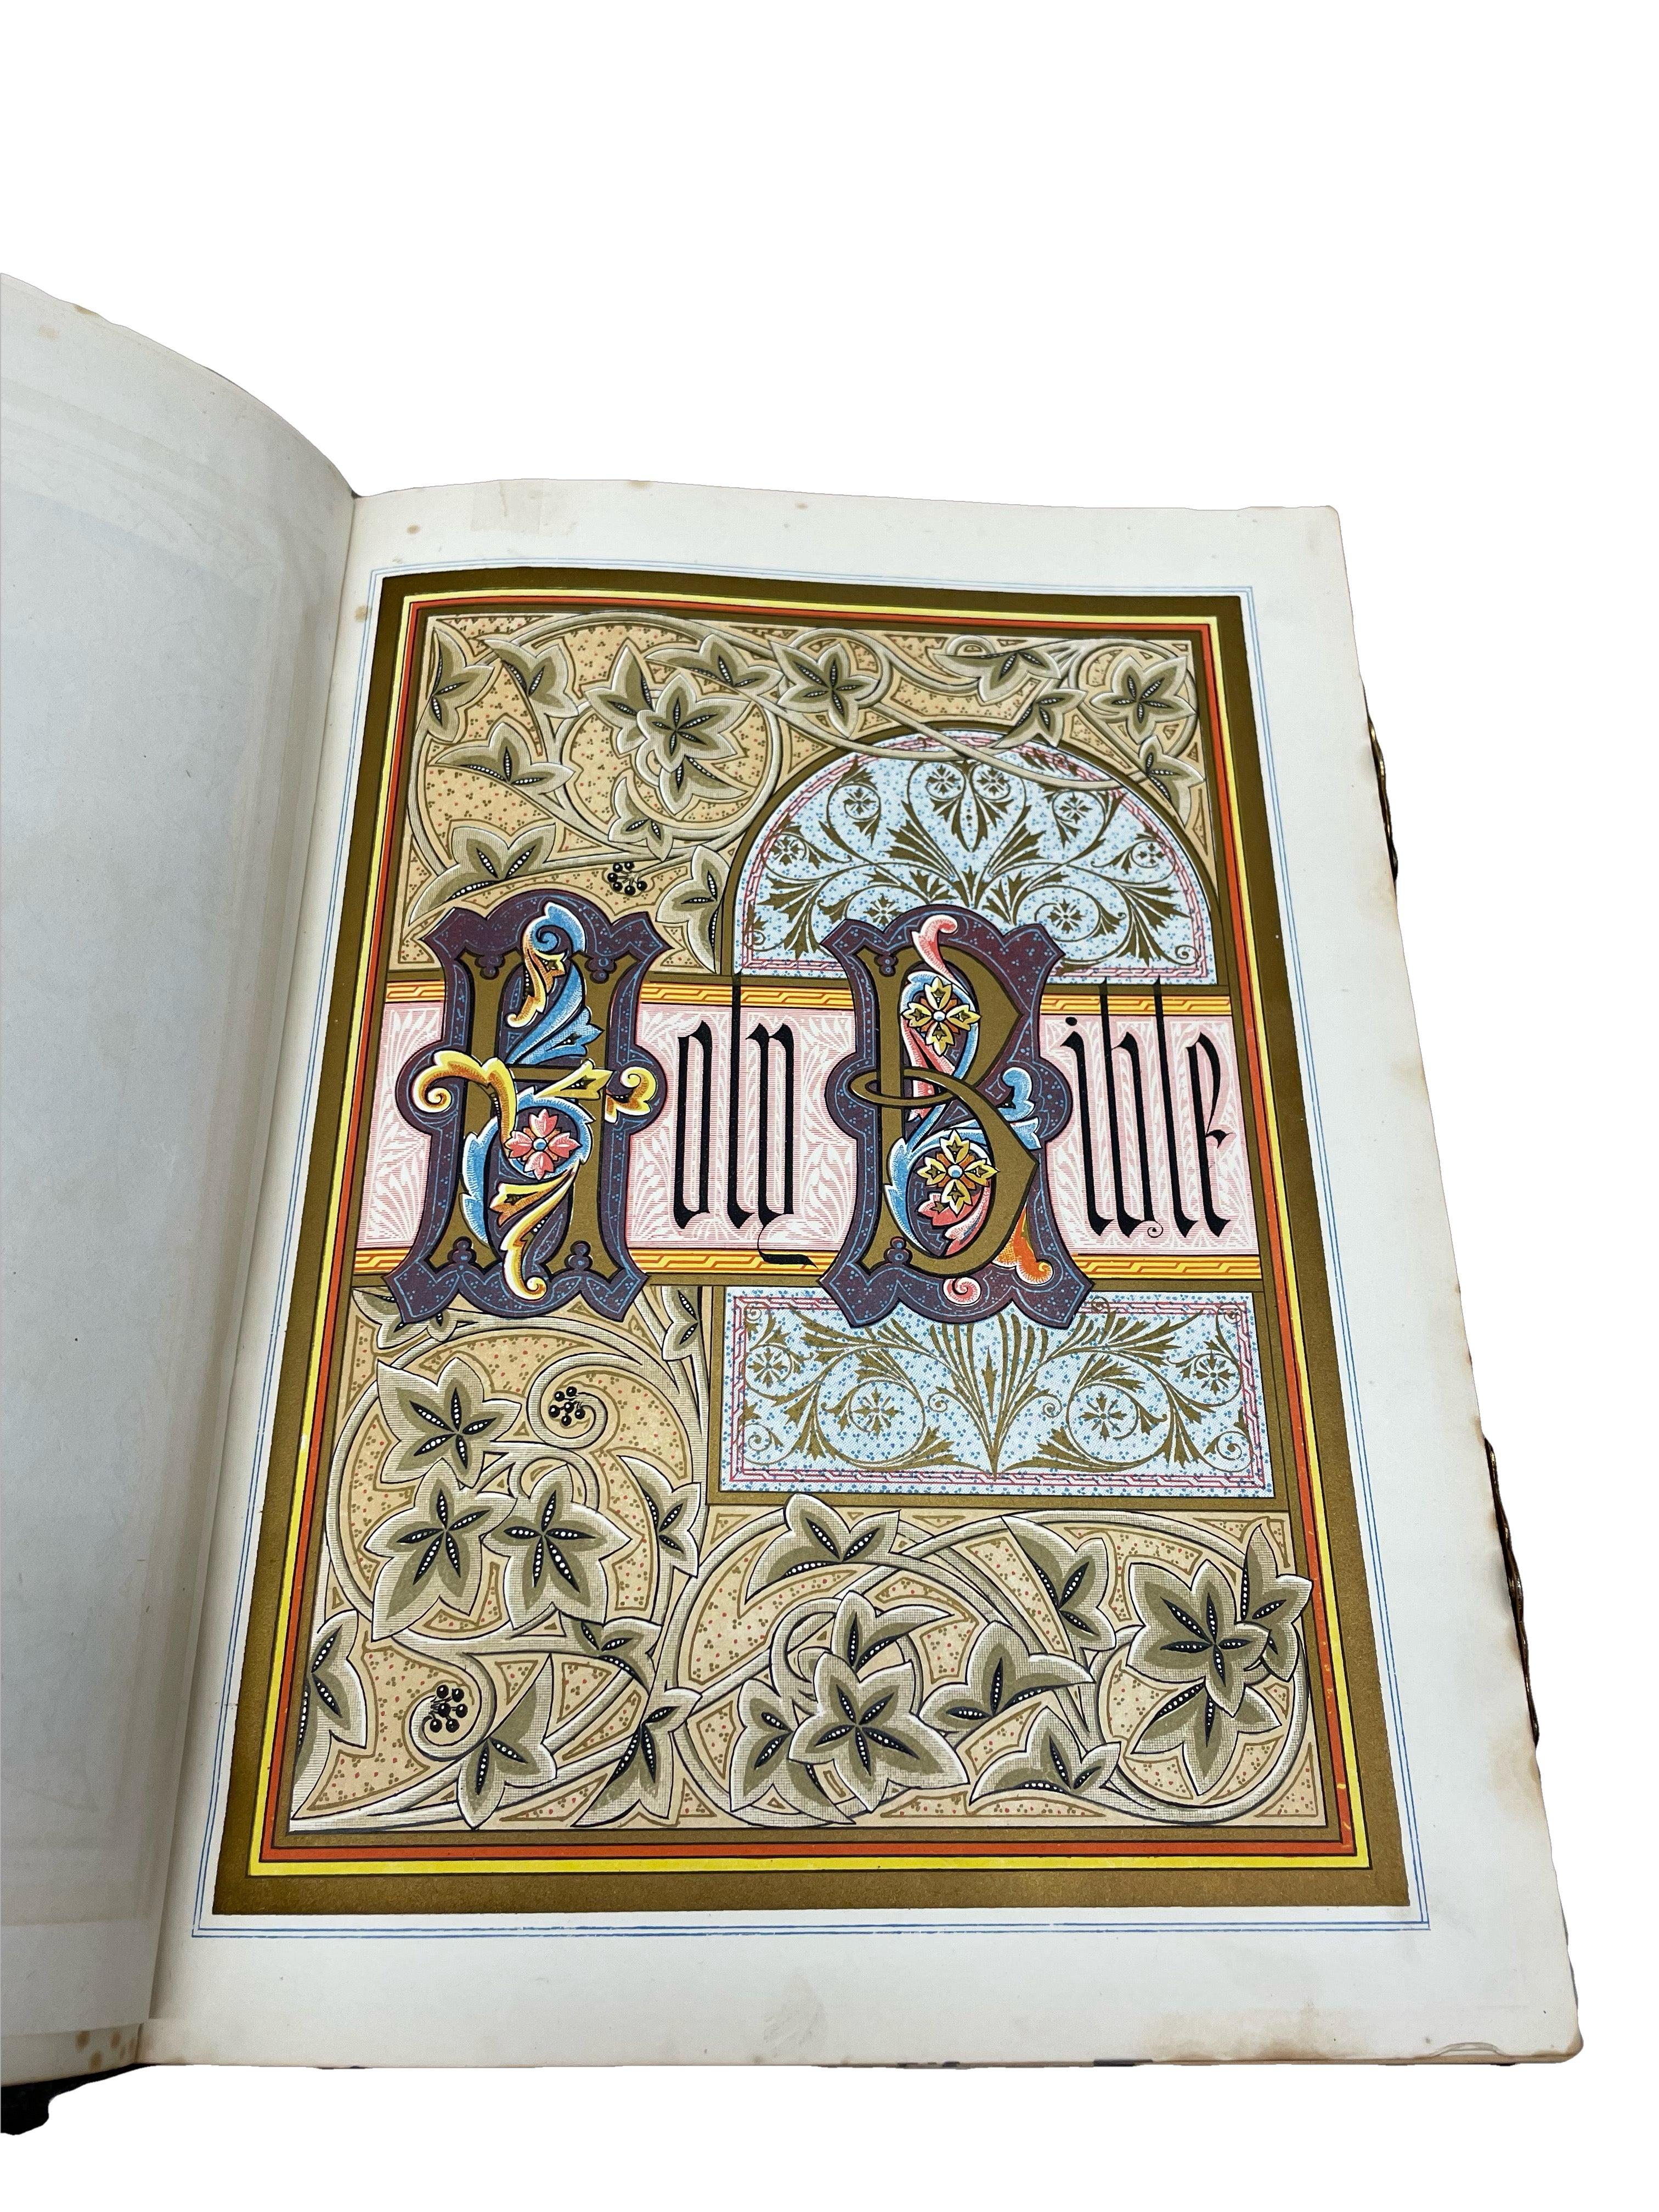 Holy Bible